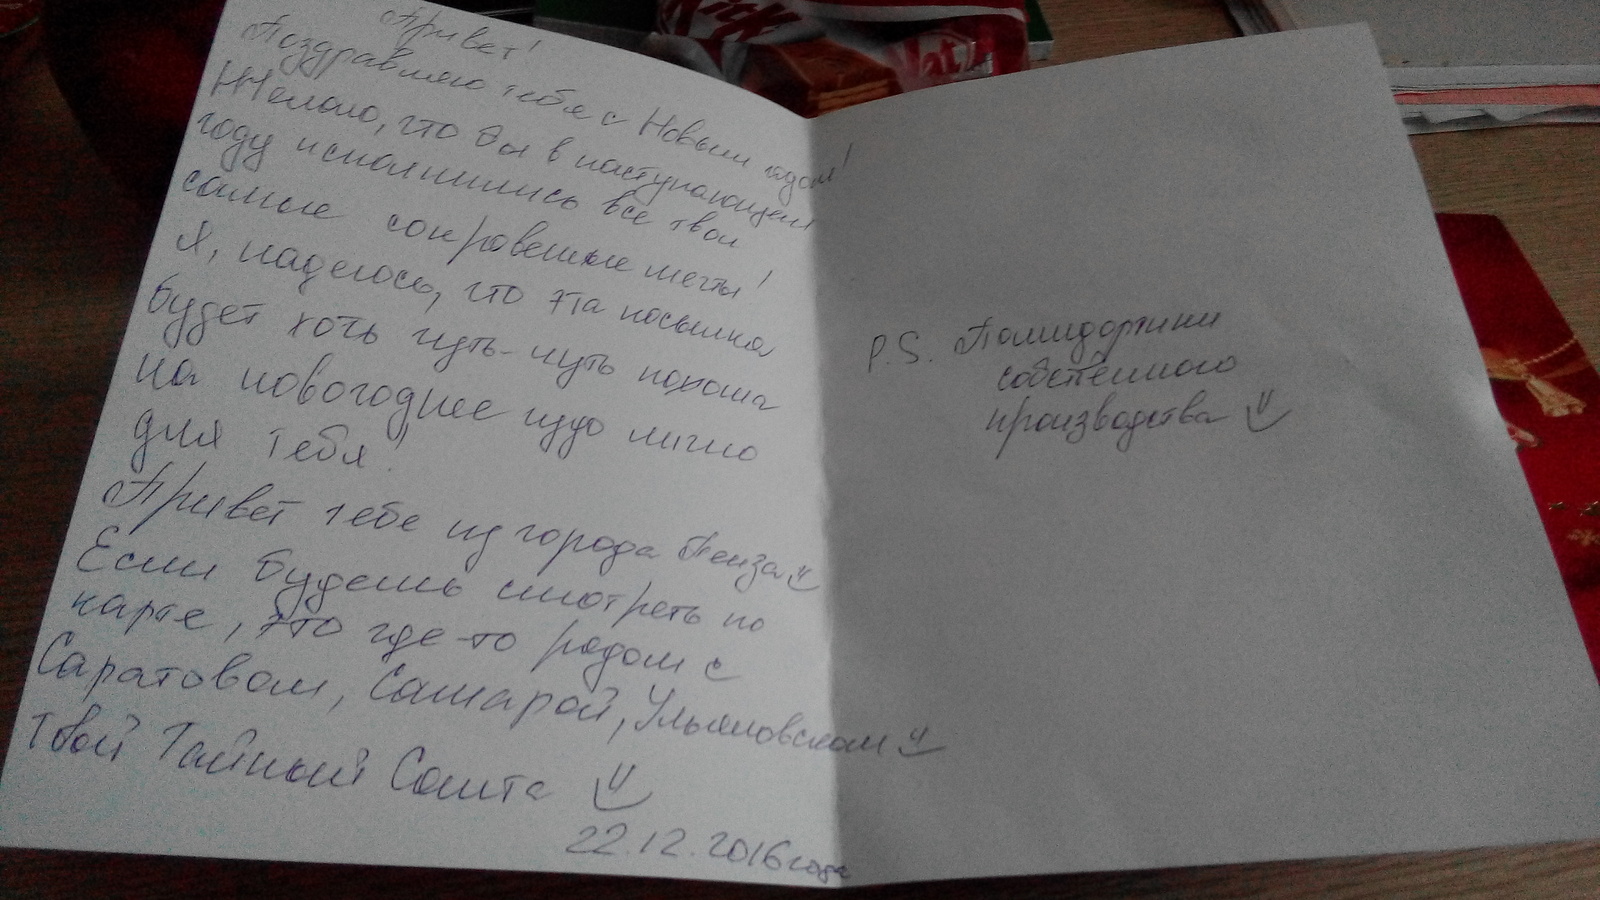 KitK
Kat
Привет!
Поздравляю тебя с Новым годом!
Желаю, что бы в наступающем
году исполнились все твои
самые сокровенные мечты!
Я, надеюсь, что эта посылка
будет хоть чуть-чуть похожа
на новогоднее чудо лично
для тебя!
Привет тебе из города Пенза
Если будешь смотреть по
карте, это где-то рядом с
Саратовом, Самарой, Ульяновском
Твой Тайный Санта
22.12.2016 года
P.S. Помидоркини
собственного
производства